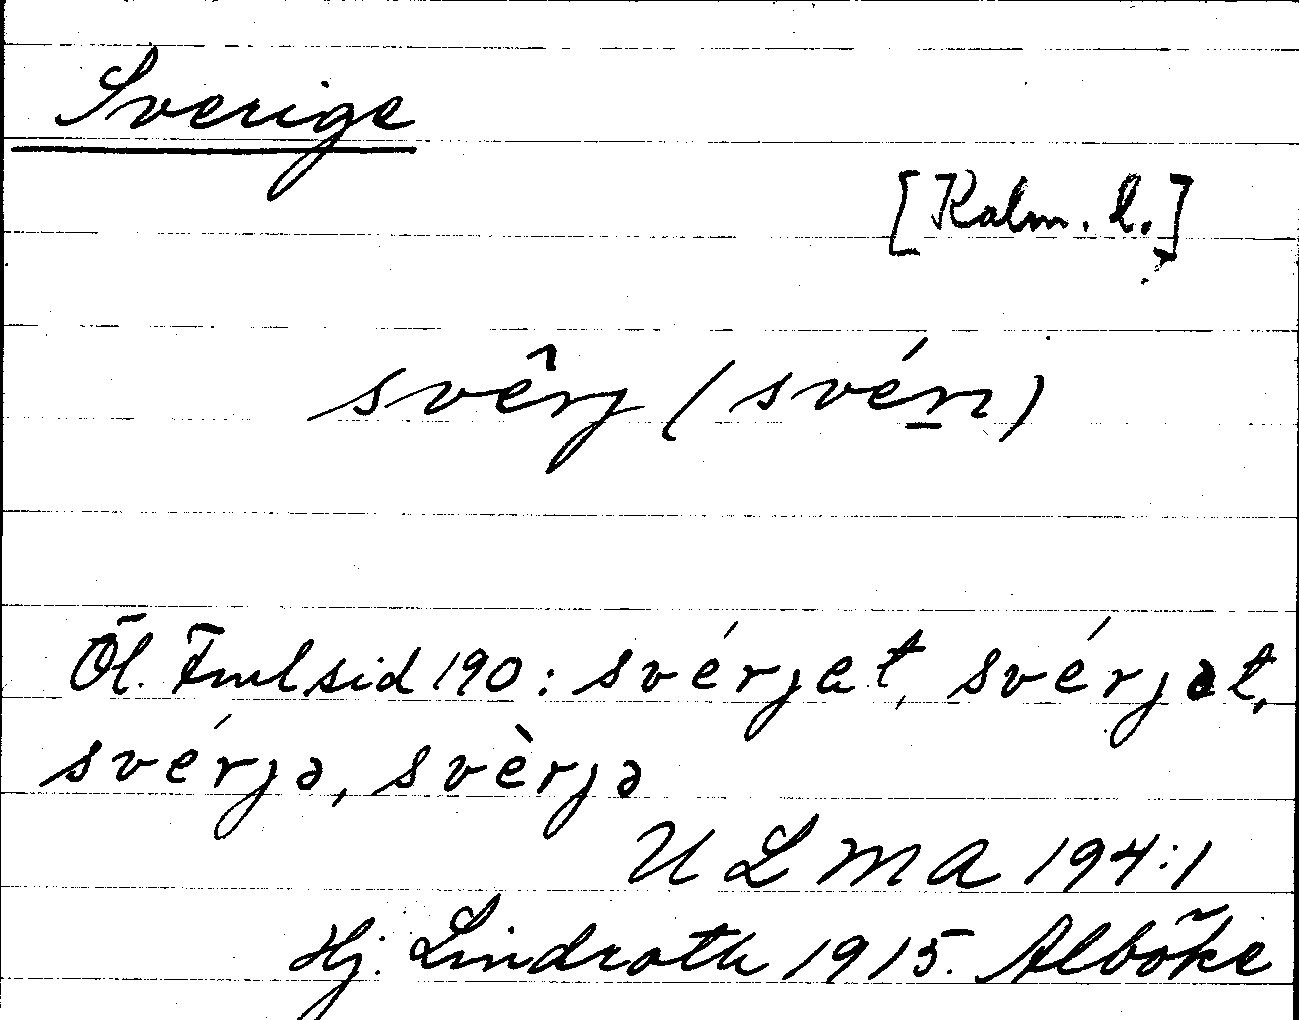 Sverige
[Kalm. l.]
svêrj (svéri)
Öl. Fmlsid 190: svérjet, svérjət,
svérjə, svèrjə
ULMA 194:1
Hj. Lindroth 1915. Alböke